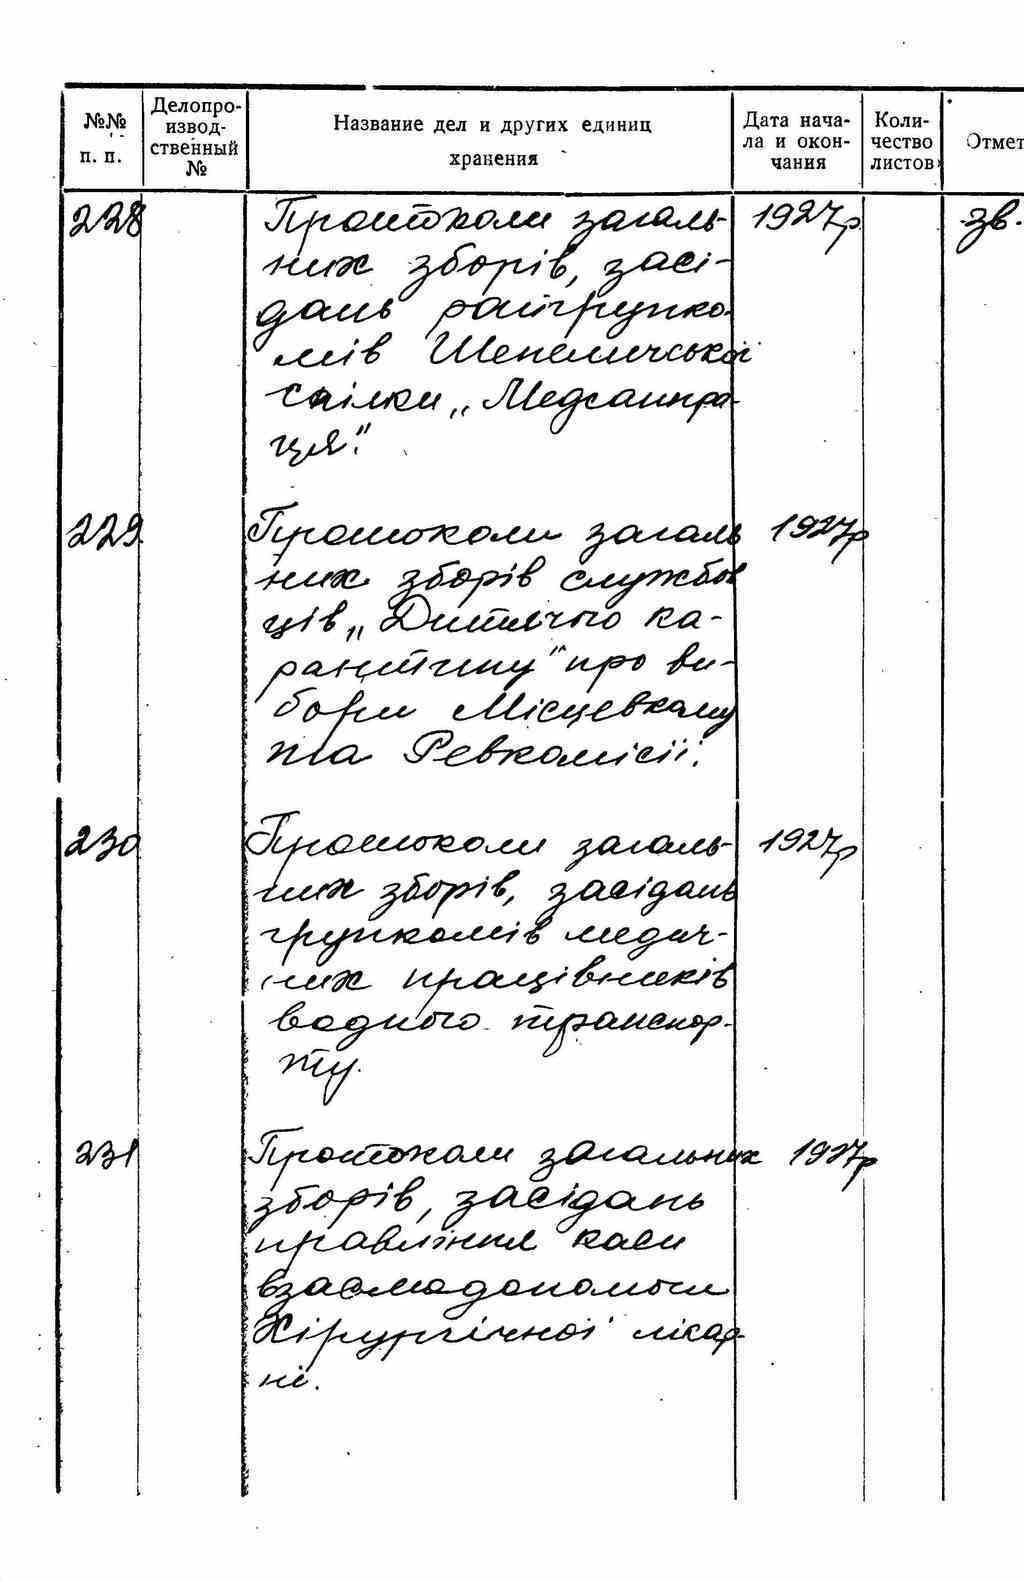 №№ п. п.
Делопро-
извод-
ственный
№
Название дел и других единиц
хранения
Дата нача-
ла и окон-
чания
Коли-
чество
листов
Отмет
228 Протоколи загаль- 1927р. зв.
них зборів, засі-
дань райгрупко-
мів Шепеличської
спілки „Медсанпра-
ця".
229 Протоколи загаль 1927р
них зборів службов
ців „Дитячого ка-
рантину" про ви-
бори Місцевкому
та Ревкомісії.
230 Протоколи загаль- 1927р
них зборів, засідань
групкомів медич-
них працівників
водного транспор-
ту.
231 Протоколи загальних 1927р
зборів, засідань
правління каси
взаємодопомоги
Хірургічної лікар-
ні.